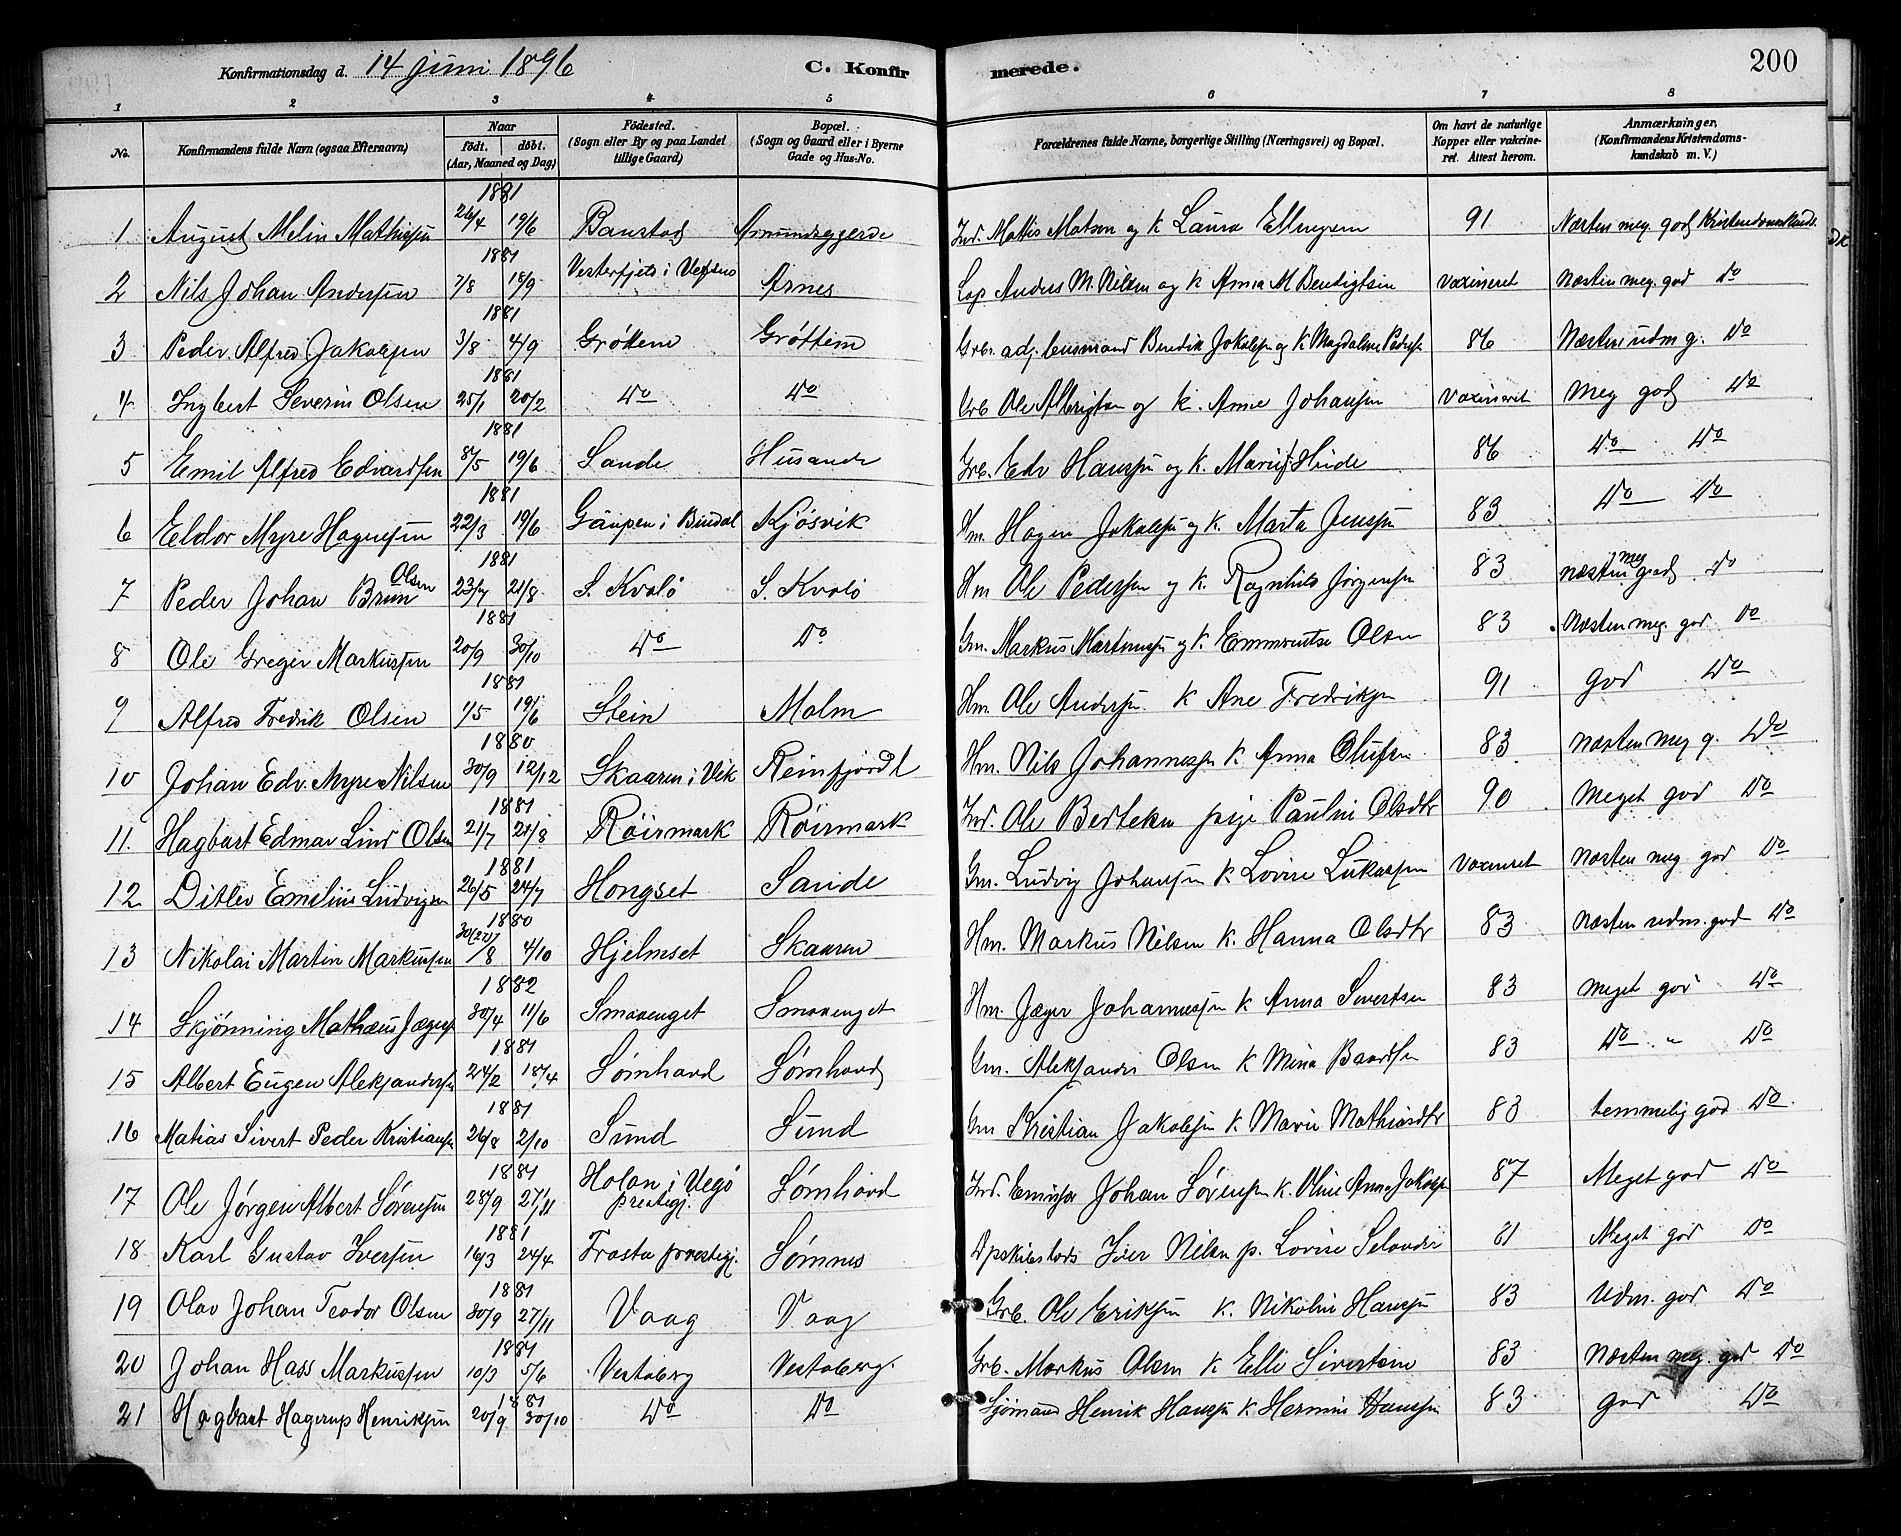 Konfirmationsdag d. 14 juni 1896 C. Konfirmerede. 200
1 2 3 4 5 6 7 8
No. Konfirmandens fulde Navn (ogsaa Efternavn) Naar födt. döbt. (Aar, Maaned og Dag) Födested. (Sogn eller By og paa Landet tillige Gaard) Bopæl. (Sogn og Gaard eller i Byerne Gade og Hus-No. Forældrenes fulde Navne, borgerlige Stilling (Næringsvei) og Bopæl. Om havt de naturlige Kopper eller vakcineret. Attest herom. Anmærkninger, (Konfirmandens Kristendomskundskab m. V.)
1881
1 August Melin Mathisen 26/4 19/6 Baustad Ind. Mattis Matsen og K Laura Ellingsen 91 Næsten meg. god Kristendomskunds.
1881
2 Nils Johan Andersen 7/8 18/9 Vesterfjeld i Vefsns Arnes Lap Anders M. Nilsen og K Anna M Bendigtsen Vaxineret Næsten meg. god Do
1881
3 Peder Alfred Jakobsen 3/8 4/9 Gröttem Gröttem Grb. adj. husmand Bendik Jakobsen og K Magdalene Pedersen 86 Næsten udm g. Do
1881
4 Ingbert Severin Olsen 25/1 20/2 Do Do Grb Ole Albrigtsen og K. Anne Johansen Vaxineret Meg god Do
1881
5 Emil Alfred Edvardsen 8/5 19/6 Sande Husande Grb. Edv Hansen og K. Marie Hilde 86 Do Do
1881
6 Eldor Myre Hagensen 22/3 19/6 Gaupen i Bindal Kjösvik Hm. Hagen Jakobsen og K. Marta Jensen 83 Do Do
1881
7 Peder Johan Brun Olsen 23/7 21/8 S. Kvalö S. Kvalö Hm Ole Pedersen og K. Ragnhild Jörgensen 83 næsten meg god Do
1881
8 Ole Greger Markussen 20/9 30/10 Do Do Gm. Markus Martinusen og K. Emmerentse Olsen 83 Næsten meg. god Do
1881
9 Alfred Fredrik Olsen 1/5 19/6 Stein Malm Hm. Ole Andersen K Ane Fredriksen 91 god Do
1880
10 Johan Edv. Myre Nilsen 30/9 12/12 Skaaren i Vik Reinfjordt Hm. Nils Johannesen K Anna Olufsen 83 Næsten meg g. Do
1881
11. Hagbart Edmar Lind Olsen 21/7 21/8 Röirmark Röirmark Ind. Ole Berteksen pige Pauline Olsdtr 90 Meget god Do
1881
12 Ditlev Emilius Ludvigsen 26/5 24/7 Hongset Sande Gm. Ludvig Johansen K Lovise Lukassen Vaxineret Næsten meg. god Do
1880
13 Nikolai Martin Markussen 30(22)/8 4/10 Hjelmset Skaaren Hm. Markus Nilsen K. Hanna Olsdtr 83 Næsten udm. god Do
1882
14 Skjönning Mathæus Jægers 30/4 11/6 Smavenget Smavenget Hm. Jæger Johannessen K Anna Sivertsen 83 Meget god Do
1881
15 Albert Eugen Aleksandersen 24/2 18/4 Sömhovd Sömhovd Gm. Aleksander Olsen K Mina Baardsen 83 Do " Do
1881
16 Matias Sivert Peder Kristiansen 26/8 2/10 Sund Sund Gm Kristian Jakobsen K Marie Mathiasdtr 83 temmelig god Do
1881
17 Ole Jörgen Albert Sörensen 28/9 27/11 Holan i Vegö prestegj. Sömhovd Ind. Johan Sörensen K. Oline Anna Jakobsen 87 Meget god Do
1881
18 Karl Gustav Iversen 16/3 24/4 Frosta prestegj. Sömnes Dpskibslods Iver Nilsen p. Lovise Selander 81 Meget god Do
1881
19 Olav Johan Teodor Olsen 30/9 27/11 Vaag Vaag Grb. Ole Eriksen K. Nikoline Hansen 83 Udm. god Do
1881
20 Johan Hass Markussen 10/3 5/6 Vestaberg Vestaberg. Grb. Markus Olsen K Elli Sivertsen 83 Næsten meg. god Do
1881
21 Hagbart Hagerup Henriksen 20/9 30/10 Do Do Sjömand Henrik Hansen K Hermine Hansen 83 god Do